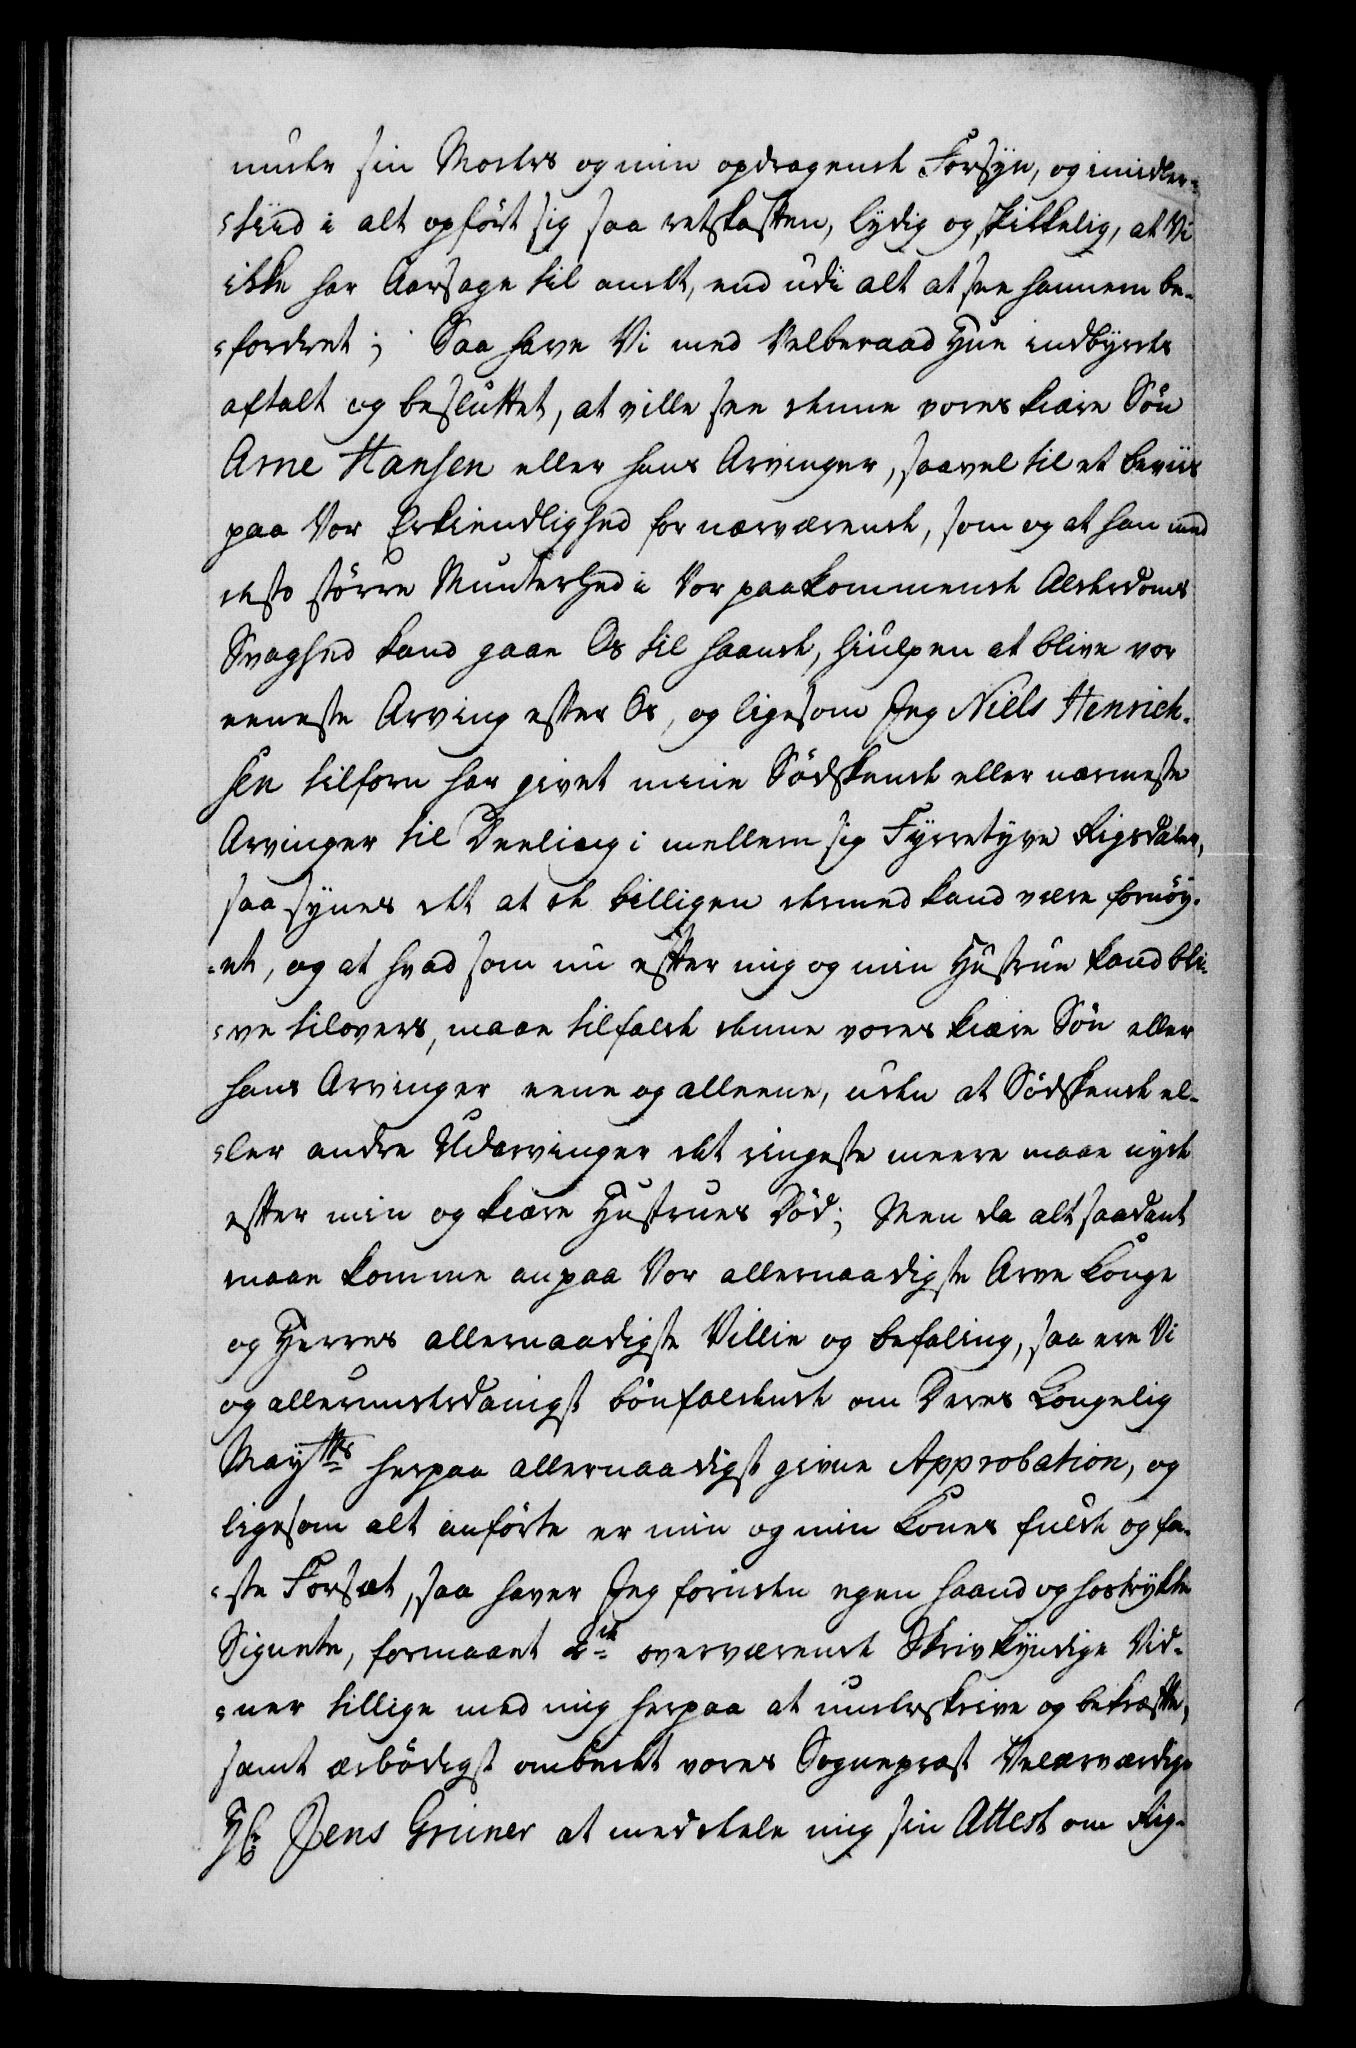 under sin Moders og min opdragende Forsÿn, og imidler-
=tiid i alt opført sig saa retskaffen, lydig og skikkelig, at Vi
ikke har Aarsage til andet, end udi alt at see hannem be-
=fordret; Saa have Vi med Velberaad Hue indbyrdes
aftalt og besluttet, at ville see denne vores kiære Søn
Arne Hansen eller hans Arvinger, saavel til et beviis
paa Vor Erkiendlighed for nærværende, som og at han med
desto større Munterhed i Vor paakommende Alderdoms
Svaghed kand gaae Os til haande, hiulpen at blive vor
eeneste Arving efter Os, og ligesom Jeg Niels Henrich-
sen tilforn har givet mine Sødskende eller nærmeste
Arvinger til Deeling i mellem sig Fyrretyve Rigsdaler,
saa synes det at de billigen dermed kand være fornøy-
=et, og at hvad som nu efter mig og min Hustrue kand bli-
=ve tilovers, maae tilfalde denne vores kiære Søn eller
hans Arvinger eene og alleene, uden at Sødskende el-
=ler andre Udarvinger det ringeste meere maae nyde
efter min og kiære Hustrues Død; Men da alt saadant
maae komme an paa Vor allernaadigste Arve Konge
og Herres allernaadigste Villie og befaling, saa ere Vi
og allerunderdanigst bønfaldende om Deres Kongelig
Mayttes herpaa allernaadigst givne Approbation, og
ligesom alt anførte er min og min Kones fulde og fa-
=ste Forsæt, saa haver Jeg foruden egen haand og hostrykte
Signete, formaaet 2de overværende Skrivkÿndige Vid-
=ner tillige med mig herpaa at underskrive og bekræfte,
samt ærbødigst ombedet vores Sognepræst Velærværdige
Hr. Jens Grüner at meddele mig sin Attest om Rig-